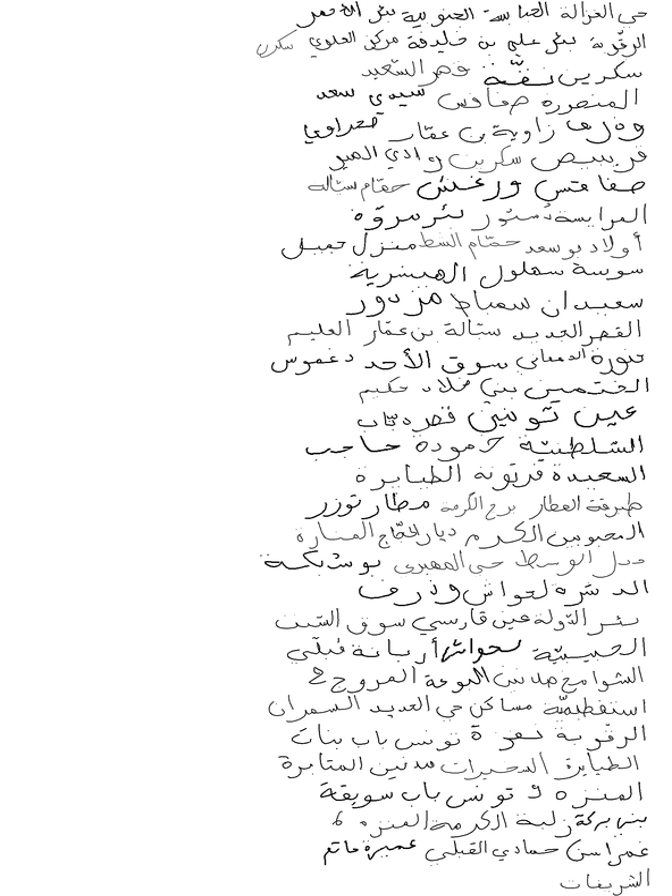 حي الغزالة العباسة الجنوبية بئر الأحمر
الرقوبة بئر علي بن خليفة مركز العلوي سكرين
سكرين نقّة قصر السّعيد
المنصورة صفاقس سيدي سعد
وذرف زاوية بن عمّار
قربيص سكرين وادي
صفاقس ورغش حمّام ستالة
المرايسة دستور بئر مروّة
أولاد بوسعد حمّام الشط منزل جميل
سوسة سهلول الهيشرية
سعيدان سمباط مزدور
القصر الجديد ستالة بن عمّار العليم
منورة سوق الأحد دغموس
الختمين بني خلاد حكيم
عين تونين قصر دباب
السّلطنيّة حمودة حاجب
السعيدة قرتونة الطبابرة
طبرقة العطار برج الكرمة مطار توزر
المحبوبين الكرم ديار الحجّاج المنارة
الوسط حي المهيري بوشبكة
الدشرة لحواش وذرف
بئر الدّولة عين قارسي سوق السّبت
الحبيبيّة لحواش أريانة قبلّي
الشوامخ مدنين المروج 2
اسنفطيميّة مساكن حي العديد السمران
الرقوبة نفزة تونس باب بنات
الطبابق البحيرات مدنين المتابرة
المنزه 5 تونس باب سويقة
بني بركة زلبة الكرمة المنزه 6
غمراسن حمادي القبلّي عميرة حاتم
الشريفات